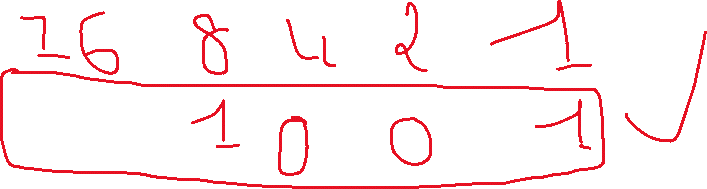 16 8 4 2 1
1 0 0 1